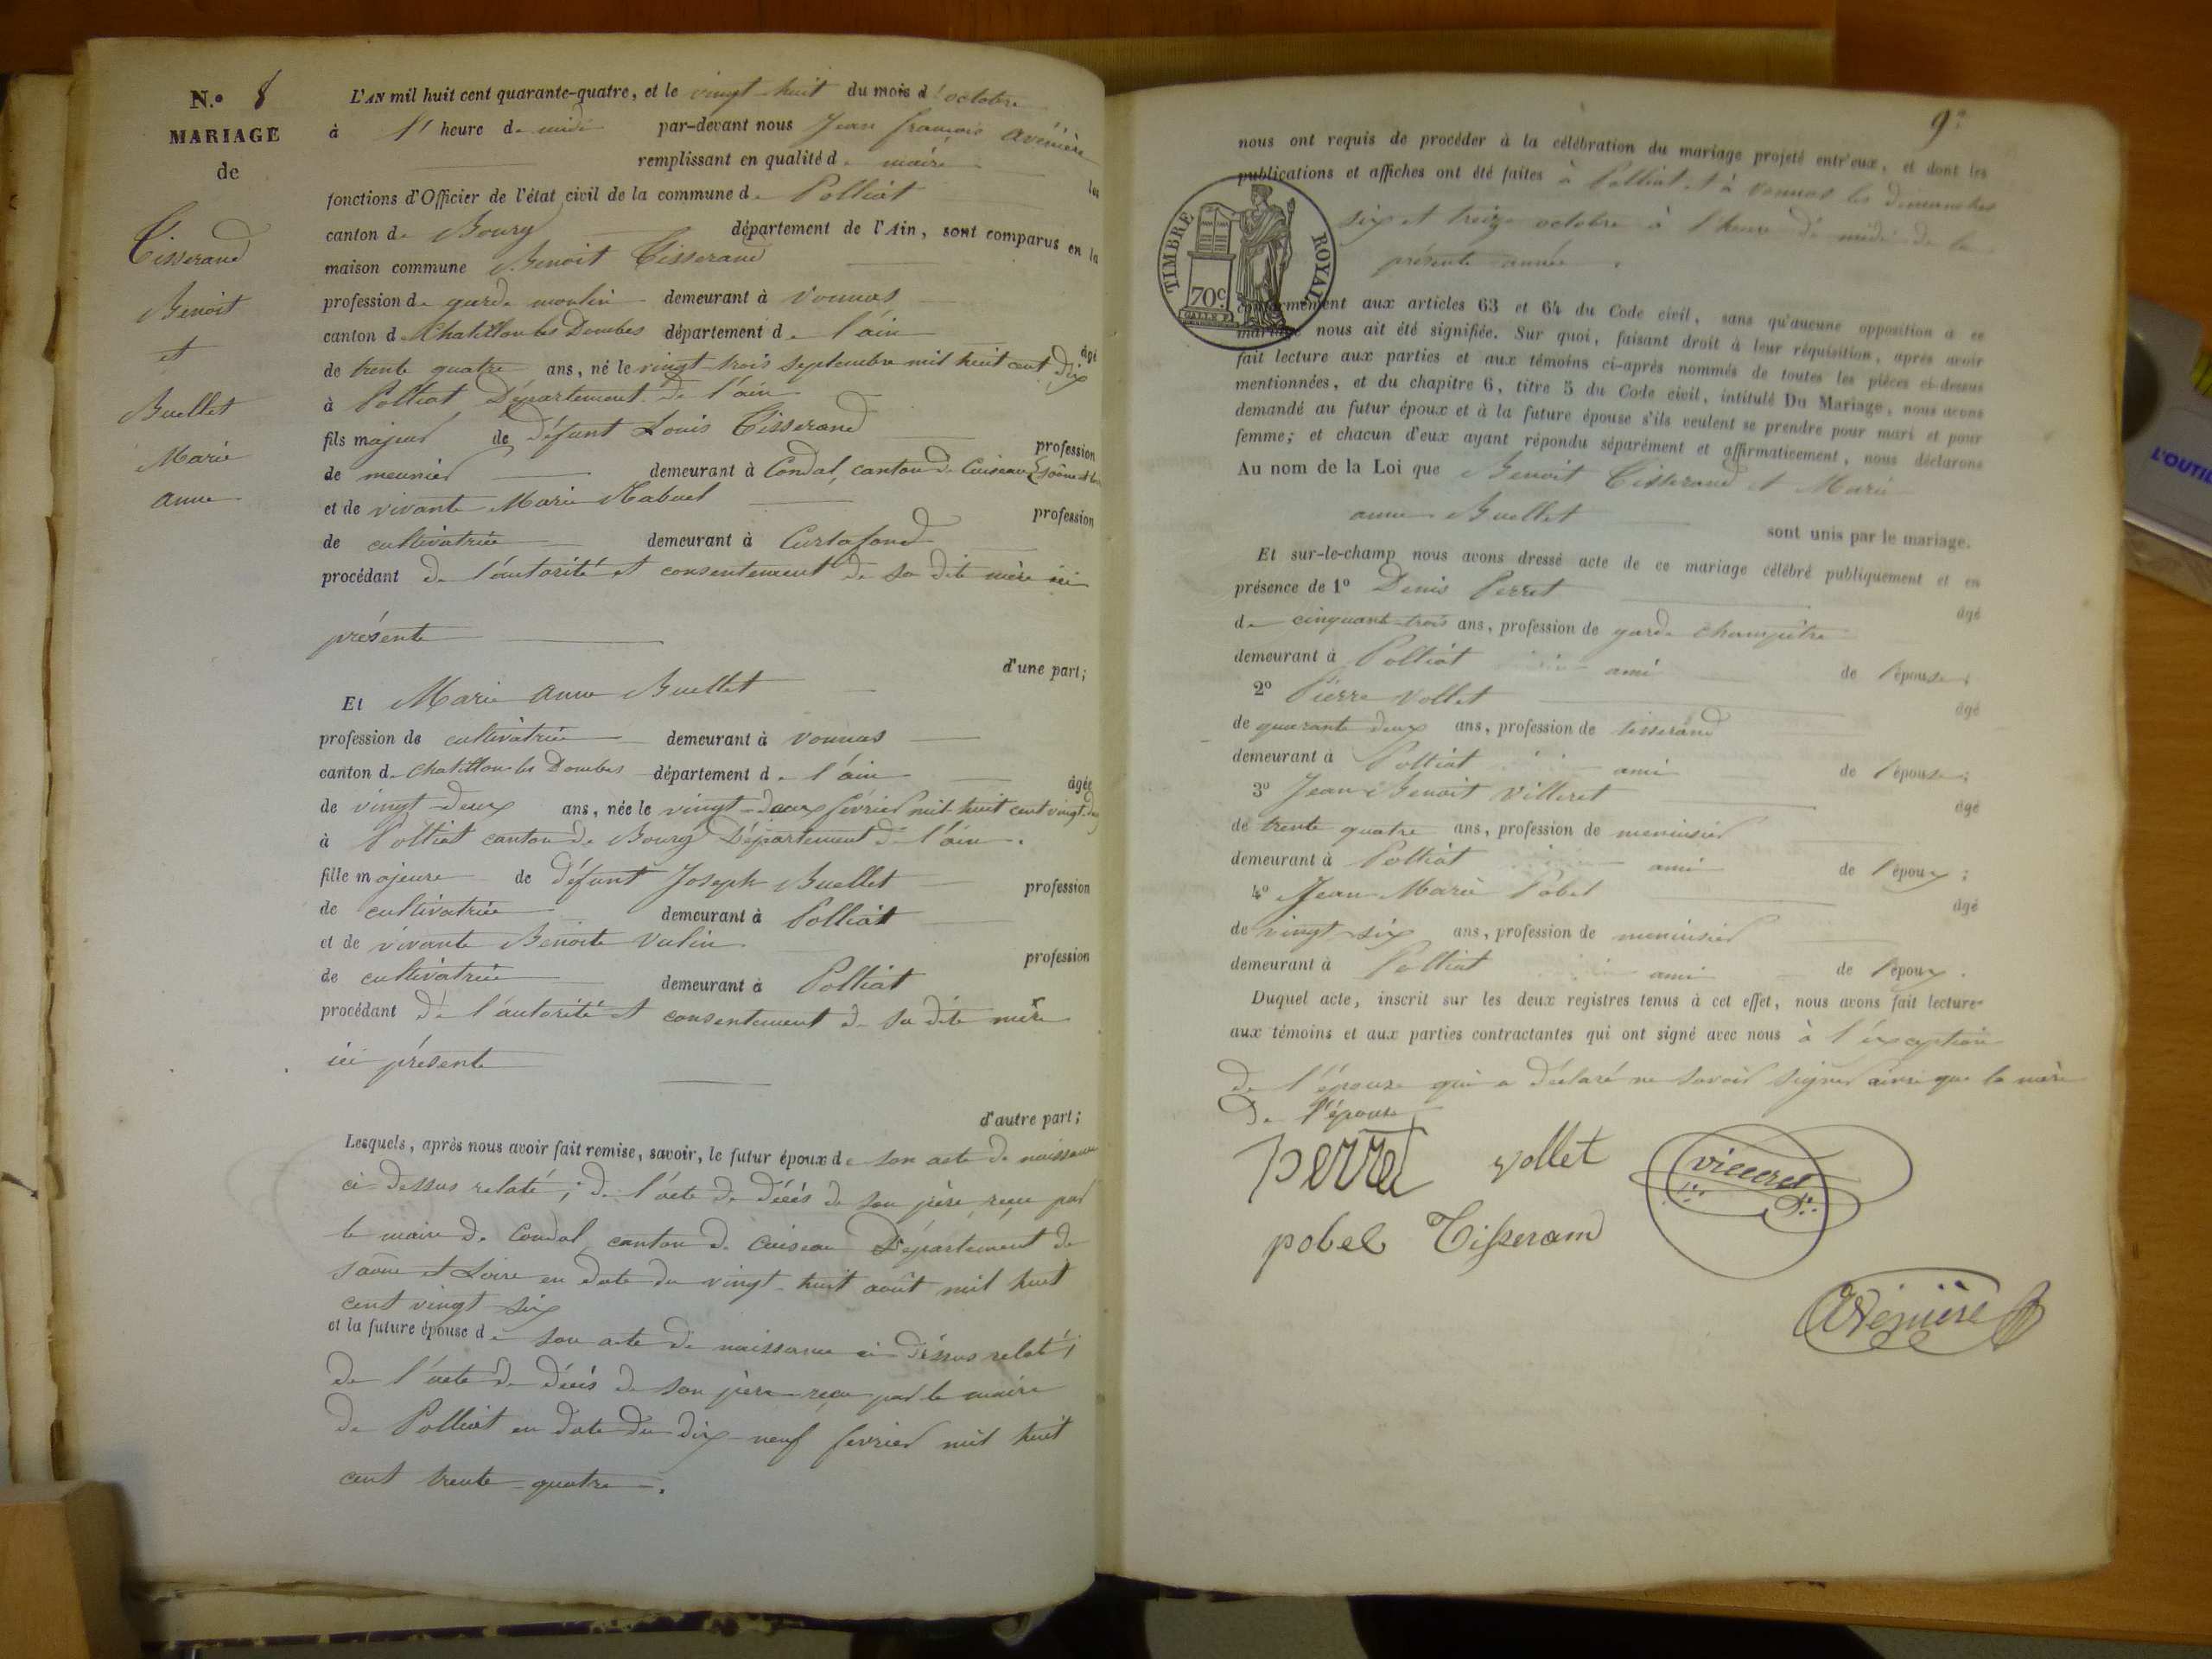 N.o 8
MARIAGE
de
Tisserand
Benoit
et
Buellet
Marie
anne
L'AN mil huit cent quarante-quatre, et le vingt-huit du mois d'octobre
à l'heure de midi par-devant nous Jean françois avénière
remplissant en qualité de maire les
fonctions d'Officier de l'état civil de la commune de Polliat
canton de Bourg département de l'Ain, sont comparus en la
maison commune Benoit Tisserand
profession de garde moulin demeurant à vonnas
canton de Chatillon les Dombes département de l'ain âgé
de trente quatre ans, né le vingt-trois septembre mil huit cent dix
à Polliat Département de l'ain
fils majeur de défunt Louis Tisserand profession
de meunier demeurant à Condal, canton de Cuiseau (Saône et Loire
et de vivante Marie Rabuel profession
de cultivatrice demeurant à Curtafond
procédant de l'autorité et consentement de sa dite mère ici
présente
d'une part;
Et Marie anne Buellet
profession de cultivatrice demeurant à vonnas
canton de Chatillon les Dombes département de l'ain âgée
de vingt-deux ans, née le vingt-deux février mil huit cent vingt-deux
à Polliat canton de Bourg Département de l'ain.
fille majeure de défunt Joseph Buellet profession
de cultivatrice demeurant à Polliat
et de vivante Benoite Vulin profession
de cultivatrice demeurant à Polliat
procédant de l'autorité et consentement de sa dite mère
ici présente
d'autre part;
Lesquels, après nous avoir fait remise, savoir, le futur époux de son acte de naissance
ci-dessus relaté; de l'acte de décès de son père reçu par
le maire de Condal, canton de Cuiseau Département de
Saone et Loire en date du vingt-huit août mil huit
cent vingt-six
et la future épouse de son acte de naissance ci-dessus relaté;
de l'acte de décès de son père reçu par le maire
de Polliat en date du dix-neuf fevrier mil huit
cent trente-quatre.
9
nous ont requis de procéder à la célébration du mariage projeté entr'eux, et dont les
publications et affiches ont été faites à Polliat et à vonnas les dimanches
six et treize octobre à l'heure de midi de la
présente année.
TIMBRE ROYAL
70c.
conformément aux articles 63 et 64 du Code civil, sans qu'aucune opposition à ce
mariage nous ait été signifiée. Sur quoi, faisant droit à leur réquisition, après avoir
fait lecture aux parties et aux témoins ci-après nommés de toutes les pièces ci-dessus
mentionnées, et du chapitre 6, titre 5 du Code civil, intitulé Du Mariage, nous avons
demandé au futur époux et à la future épouse s'ils veulent se prendre pour mari et pour
femme; et chacun d'eux ayant répondu séparément et affirmativement, nous déclarons
Au nom de la Loi que Benoit Tisserand et Marie
anne Buellet
sont unis par le mariage.
Et sur-le-champ nous avons dressé acte de ce mariage célébré publiquement et en
présence de 1o Denis Perret âgé
de cinquante-trois ans, profession de garde champêtre
demeurant à Polliat ami de l'épouse;
2o Pierre Vollet âgé
de quarante deux ans, profession de tisserand
demeurant à Polliat ami de l'épouse;
3o Jean Benoit Villeret âgé
de trente quatre ans, profession de menuisier
demeurant à Polliat ami de l'époux;
4o Jean Marie Pobel âgé
de vingt-six ans, profession de menuisier
demeurant à Polliat ami de l'époux.
Duquel acte, inscrit sur les deux registres tenus à cet effet, nous avons fait lecture
aux témoins et aux parties contractantes qui ont signé avec nous à l'exception
de l'épouse qui a déclaré ne savoir signer ainsi que la mère
de l'épouse
perret vollet villeret
pobel Tisserand
Avénière
L'OUTIL